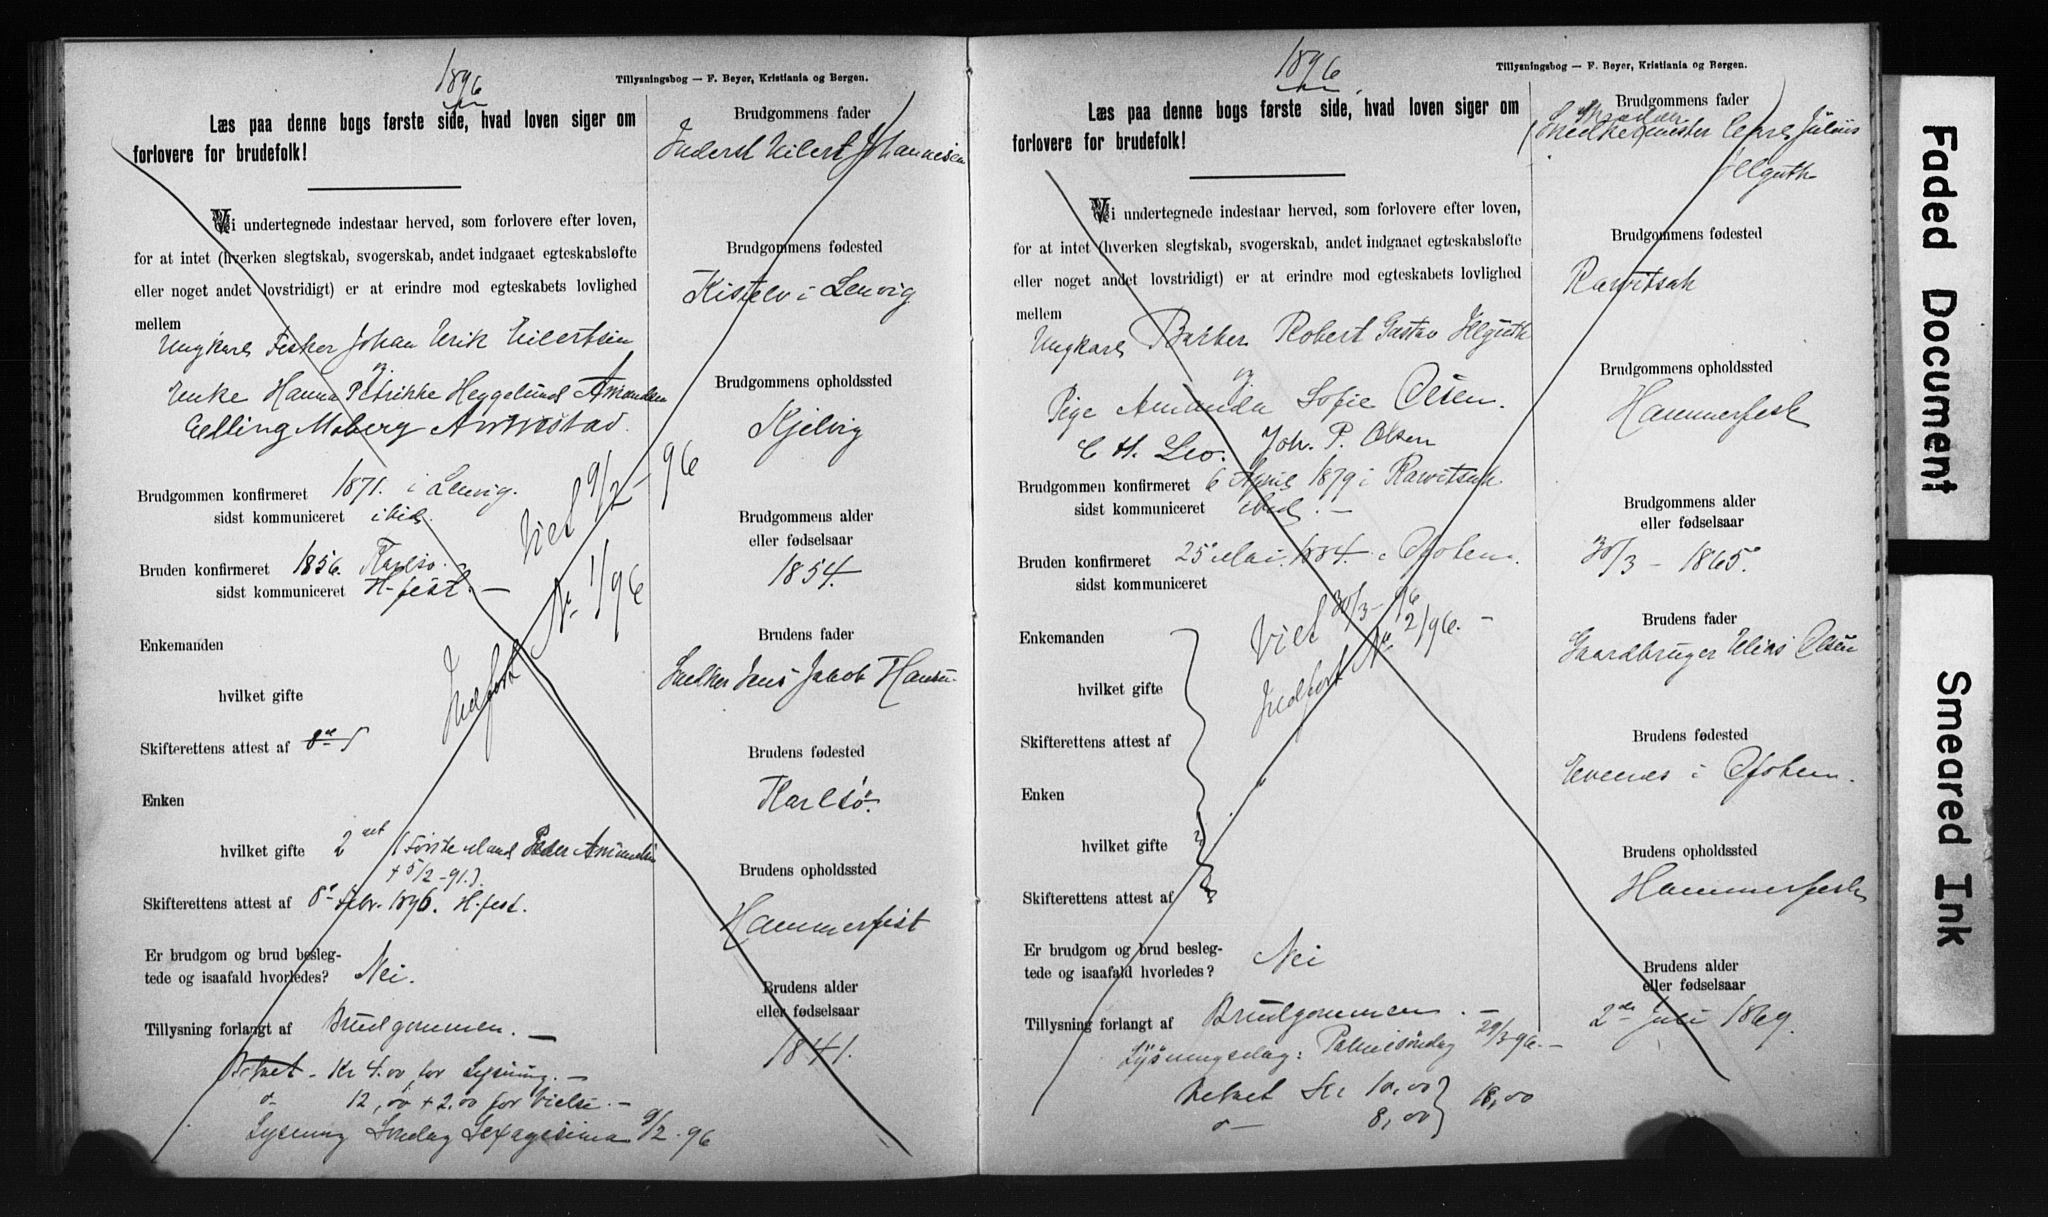 1896
Tillysningsbog — F. Beyer, Kristiania og Bergen.
Læs paa denne bogs første side, hvad loven siger om
forlovere for brudefolk!
Vi undertegnede indestaar herved, som forlovere efter loven,
for at intet (hverken slegtskab, svogerskab, andet indgaaet egteskabsløfte
eller noget andet lovstridigt) er at erindre mod egteskabets lovlighed
mellem
Ungkarl Fisker Johan Erik Eilertsen
og
Enke Hanna Petrikke Heggelund Amundsen
Elling Moberg
Brudgommen konfirmeret 1871. i Lenvig.
sidst kommuniceret ibid.
Bruden konfirmeret 1856. Karlsø.
sidst kommuniceret H-fest. —
Viet 9/2 - 96
Indført No 1/96
Enkemanden
hvilket gifte
Skifterettens attest af 8de
Enken
hvilket gifte 2det (Første Mand Peder Amundsen
+ 5/2 - 91.)
Skifterettens attest af 8de Febr. 1896. H-fest.
Er brudgom og brud besleg-
tede og isaafald hvorledes? Nei.
Tillysning forlangt af Brudgommen. —
Betalt - Kr 4.00 for Lysning. —
12,00 + 2,00 for Vielse. —
Lysning Søndag Sexagesima 9/2. 96
Brudgommens fader
Inderst Eilert Johannesen
Brudgommens fødested
i Lenvig
Brudgommens opholdssted
Kjelvig
Brudgommens alder
eller fødselsaar
1854.
Brudens fader
Jens Jakob Hansen
Brudens fødested
Karlsö.
Brudens opholdssted
Hammerfest
Brudens alder
eller fødselsaar
1841.
1896
Tillysningsbog — F. Beyer, Kristiania og Bergen.
Læs paa denne bogs første side, hvad loven siger om
forlovere for brudefolk!
Vi undertegnede indestaar herved, som forlovere efter loven,
for at intet (hverken slegtskab, svogerskab, andet indgaaet egteskabsløfte
eller noget andet lovstridigt) er at erindre mod egteskabets lovlighed
mellem
Ungkarl Barber Robert Gustav Helguth
og
Pige Amanda Sofie Olsen.
C H. Leo. Joh. P. Olsen
Brudgommen konfirmeret 6 April 1879 i Rawitsch
sidst kommuniceret ibid. —
Bruden konfirmeret 25 Mai. 1884. i Ofoten.
sidst kommuniceret
Viet 30/3 - 96
Indført No 2/96. —
Enkemanden
hvilket gifte
Skifterettens attest af
Enken
hvilket gifte
Skifterettens attest af
Er brudgom og brud besleg-
tede og isaafald hvorledes? Nei
Tillysning forlangt af Brudgommen. —
Lysningsdag: Palmesöndag 29/3 96. —
Betalt Kr 10,00 } 18,00
8,00
Brudgommens fader
Carl Julius
Helguth
Brudgommens fødested
Rawitsch
Brudgommens opholdssted
Hammerfest
Brudgommens alder
eller fødselsaar
30/3 - 1865.
Brudens fader
Gaardbruger Elias Olsen
Brudens fødested
Evenes i Ofoten.
Brudens opholdssted
Hammerfest
Brudens alder
eller fødselsaar
2de Juli 1869.
Faded Document
Smeared Ink